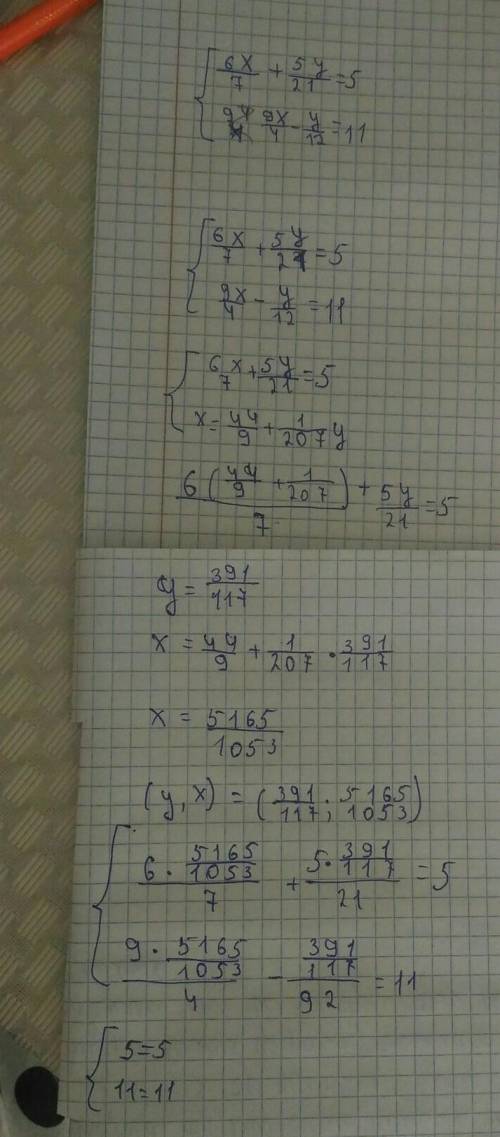 { 6x/7 + 5y/21 = 5
9x/4 - y/12 = 11
{ 6x/7 + 5y/21 = 5
9x/4 - y/12 = 11
{ 6x/7 + 5y/21 = 5
x = 44/9 + 1/207 y
6(44/9 + 1/207)/7 + 5y/21 = 5
y = 391/117
x = 44/9 + 1/207 · 391/117
x = 5165/1053
(y, x) = (391/117; 5165/1053)
{ 6 · 5165/1053 / 7 + 5 · 391/117 / 21 = 5
9 · 5165/1053 / 4 - 391/117 / 92 = 11
{ 5=5
11=11